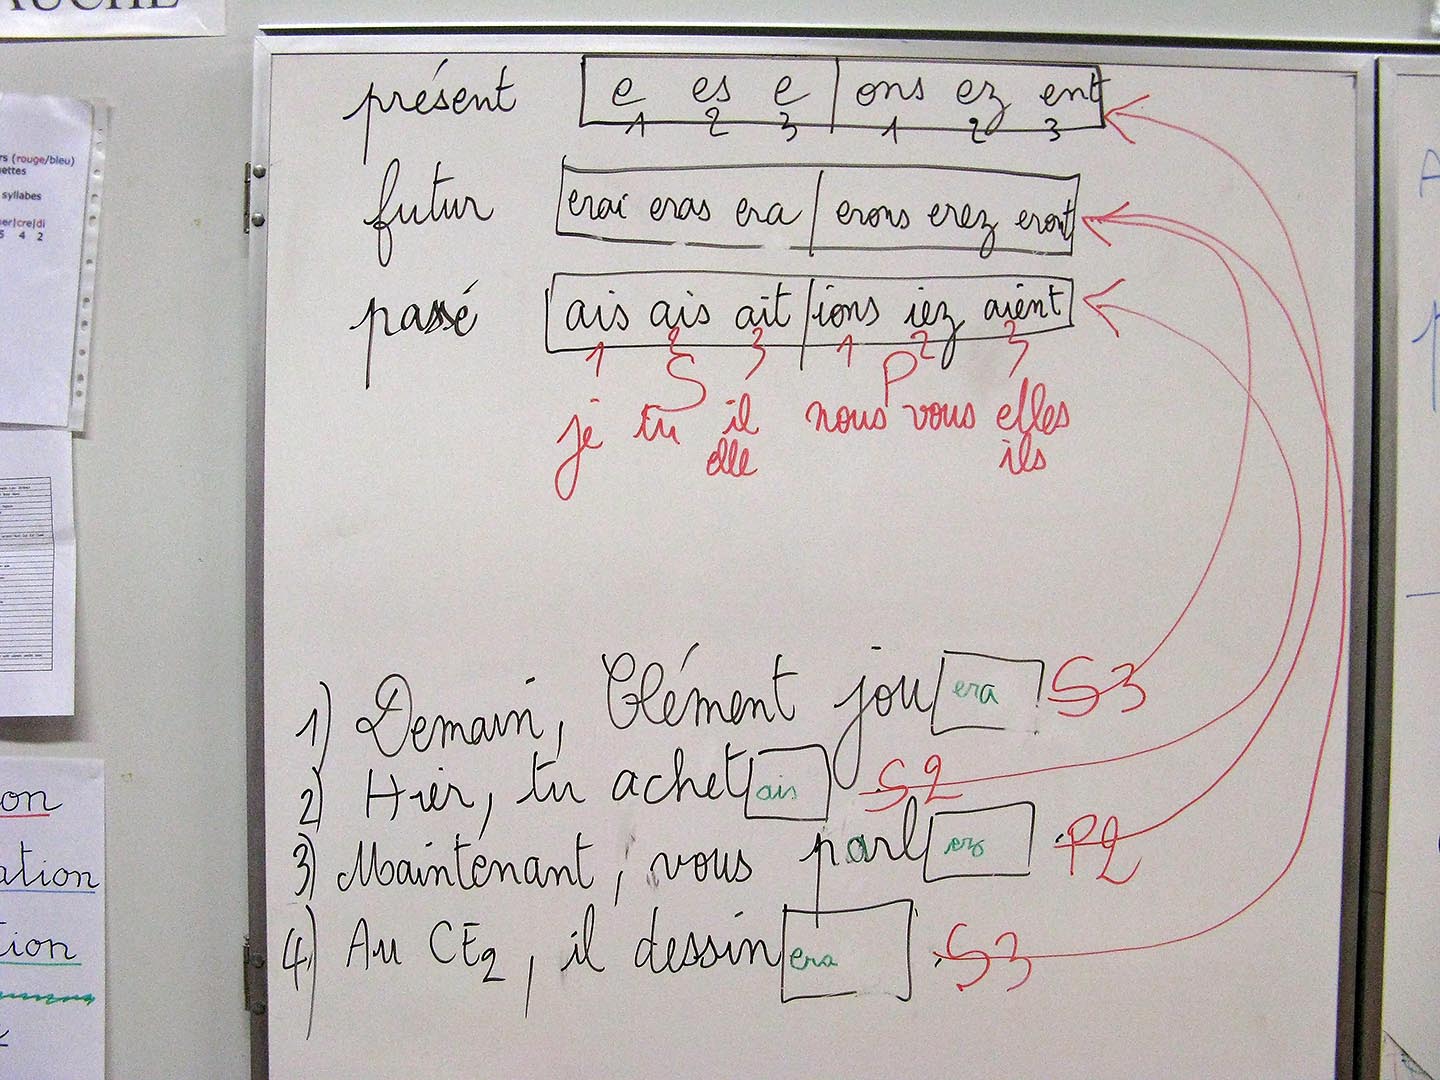 AUCHE
présent e es e ons ez ent
1 2 3 1 2 3
futur erai eras era erons erez eront
passé ais ais ait ions iez aient
1 2 3 1 2 3
S P
je tu il nous vous elles
elle ils
1) Demain, Clément jou era S3
2) Hier, tu achet ais S2
3) Maintenant, vous parl ez P2
4) Au CE2, il dessin era S3
rs (rouge/bleu)
uettes
syllabes
er|cre|di
5 4 2
on
ation
tion